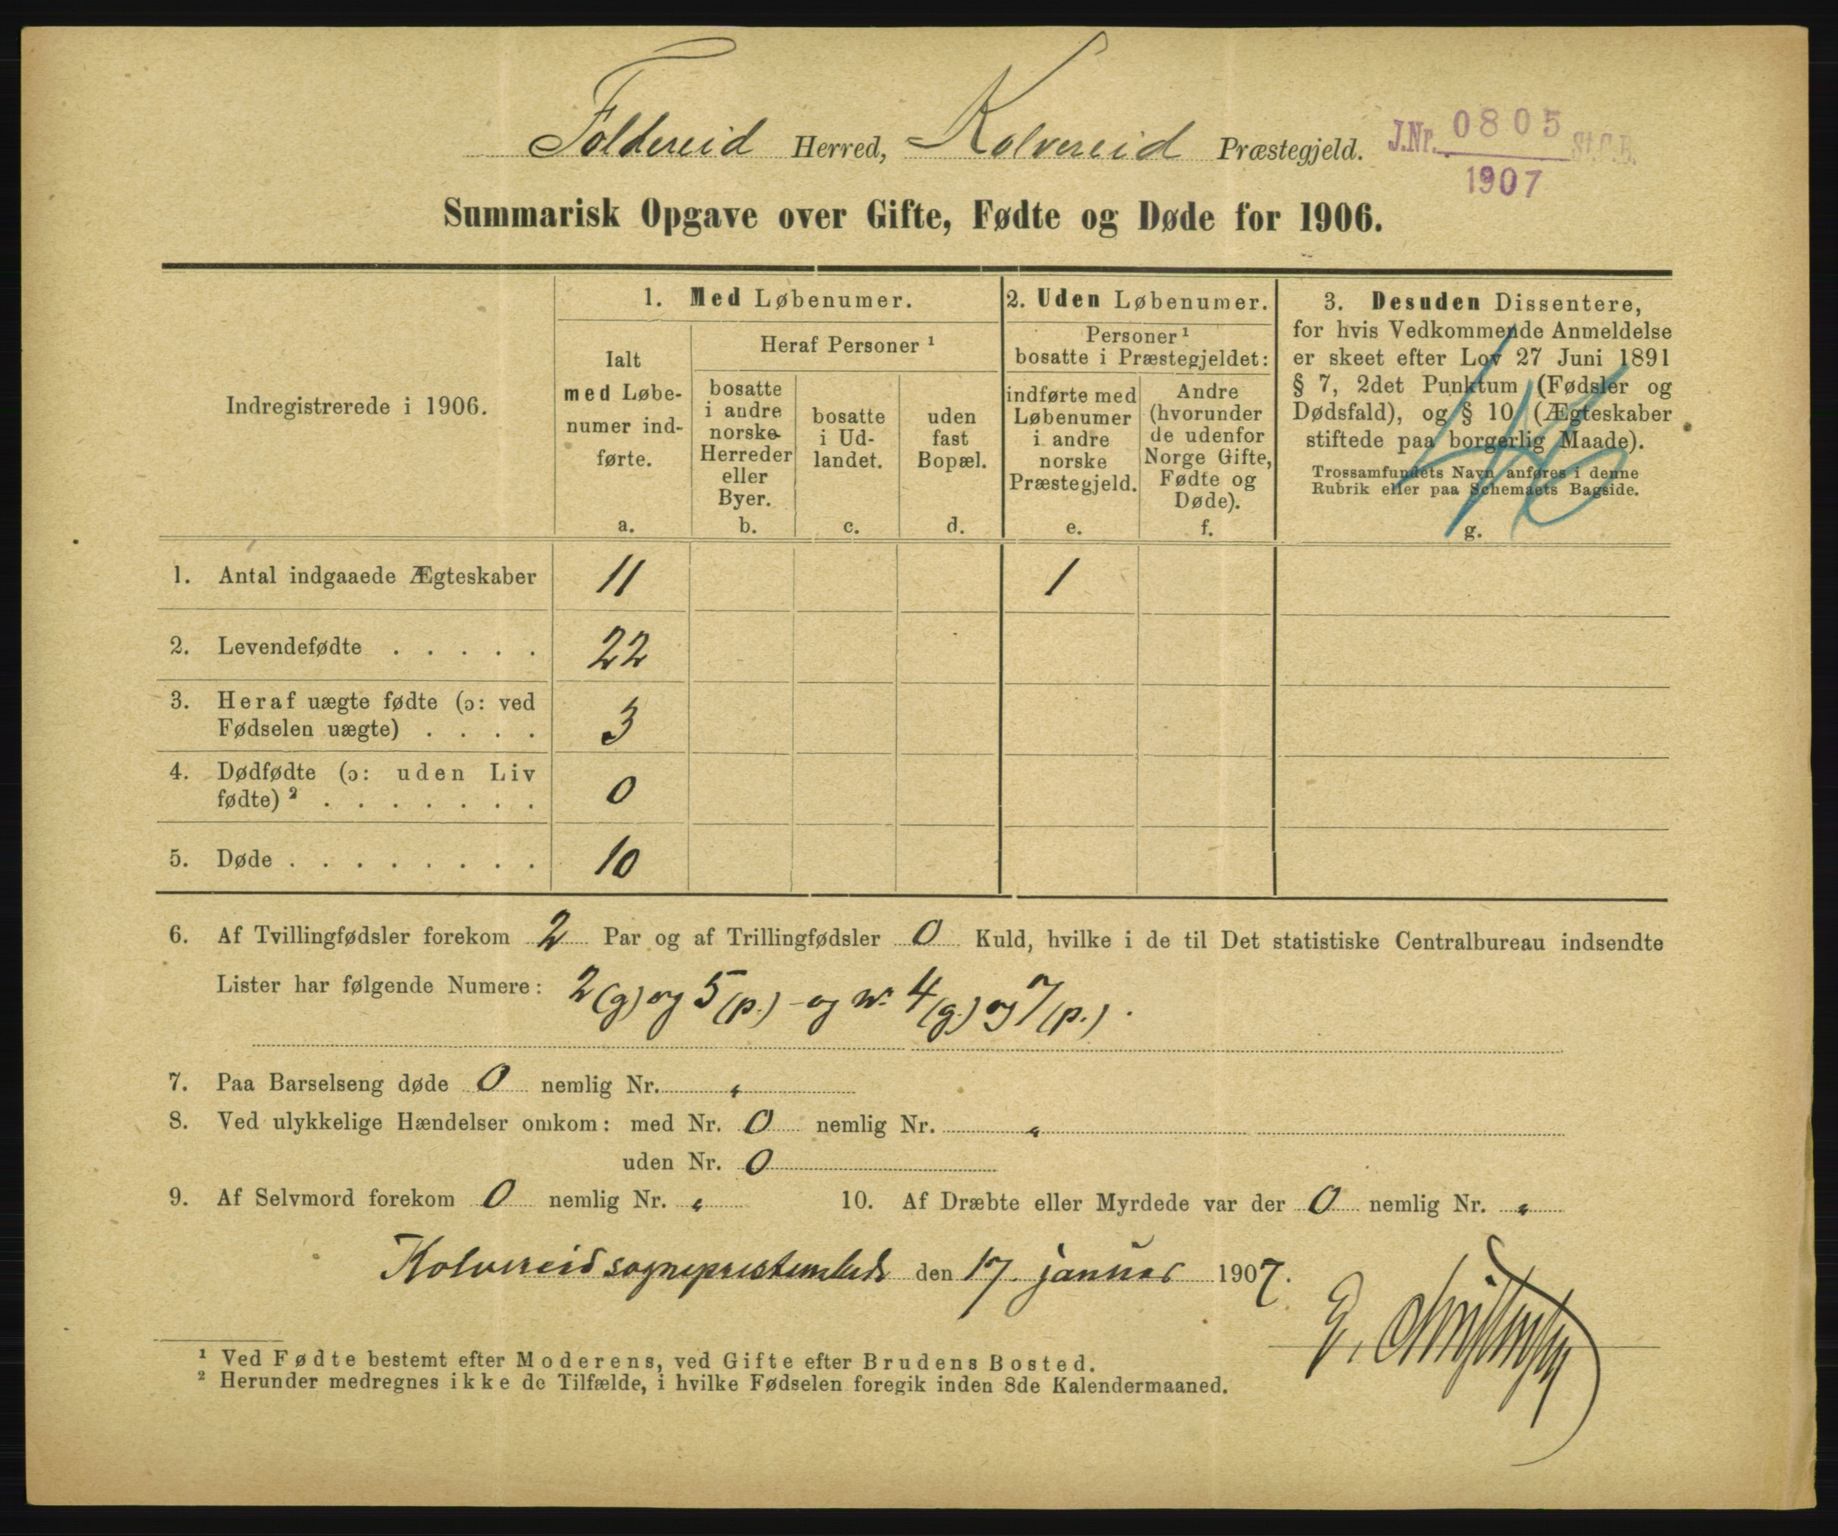 Foldereid Herred, Kolvereid Præstegjeld.
J.Nr. 0805 St.C.B.
1907
Summarisk Opgave over Gifte, Fødte og Døde for 1906.
Indregistrerede i 1906.
1. Med Løbenumer.
Ialt
med Løbe-
numer ind-
førte.
a.
Heraf Personer ¹
bosatte
i andre
norske
Herreder
eller
Byer.
b.
bosatte
i Ud-
landet.
c.
uden
fast
Bopæl.
d.
2. Uden Løbenumer.
Personer ¹
bosatte i Præstegjeldet:
indførte med
Løbenumer
i andre
norske
Præstegjeld.
e.
Andre
(hvorunder
de udenfor
Norge Gifte,
Fødte og
Døde).
f.
3. Desuden Dissentere,
for hvis Vedkommende Anmeldelse
er skeet efter Lov 27 Juni 1891
§ 7, 2det Punktum (Fødsler og
Dødsfald), og § 10 (Ægteskaber
stiftede paa borgerlig Maade).
Trossamfundets Navn anføres i denne
Rubrik eller paa Schemaets Bagside.
g.
1. Antal indgaaede Ægteskaber 11 1
2. Levendefødte . . . . . 22
3. Heraf uægte fødte (ɔ: ved
Fødselen uægte) . . . . 3
4. Dødfødte (ɔ: uden Liv
fødte) ² . . . . . . . 0
5. Døde . . . . . . . . 10
6. Af Tvillingfødsler forekom 2 Par og af Trillingfødsler 0 Kuld, hvilke i de til Det statistiske Centralbureau indsendte
Lister har følgende Numere: 2 (g) og 5 (p.) - og nr. 4 (g.) og 7 (p.).
7. Paa Barselseng døde 0 nemlig Nr. "
8. Ved ulykkelige Hændelser omkom: med Nr. 0 nemlig Nr. "
uden Nr. 0
9. Af Selvmord forekom 0 nemlig Nr. "
10. Af Dræbte eller Myrdede var der 0 nemlig Nr. "
Kolvereid sogneprestembede den 17. januar 1907.
E.
¹ Ved Fødte bestemt efter Moderens, ved Gifte efter Brudens Bosted.
² Herunder medregnes ikke de Tilfælde, i hvilke Fødselen foregik inden 8de Kalendermaaned.